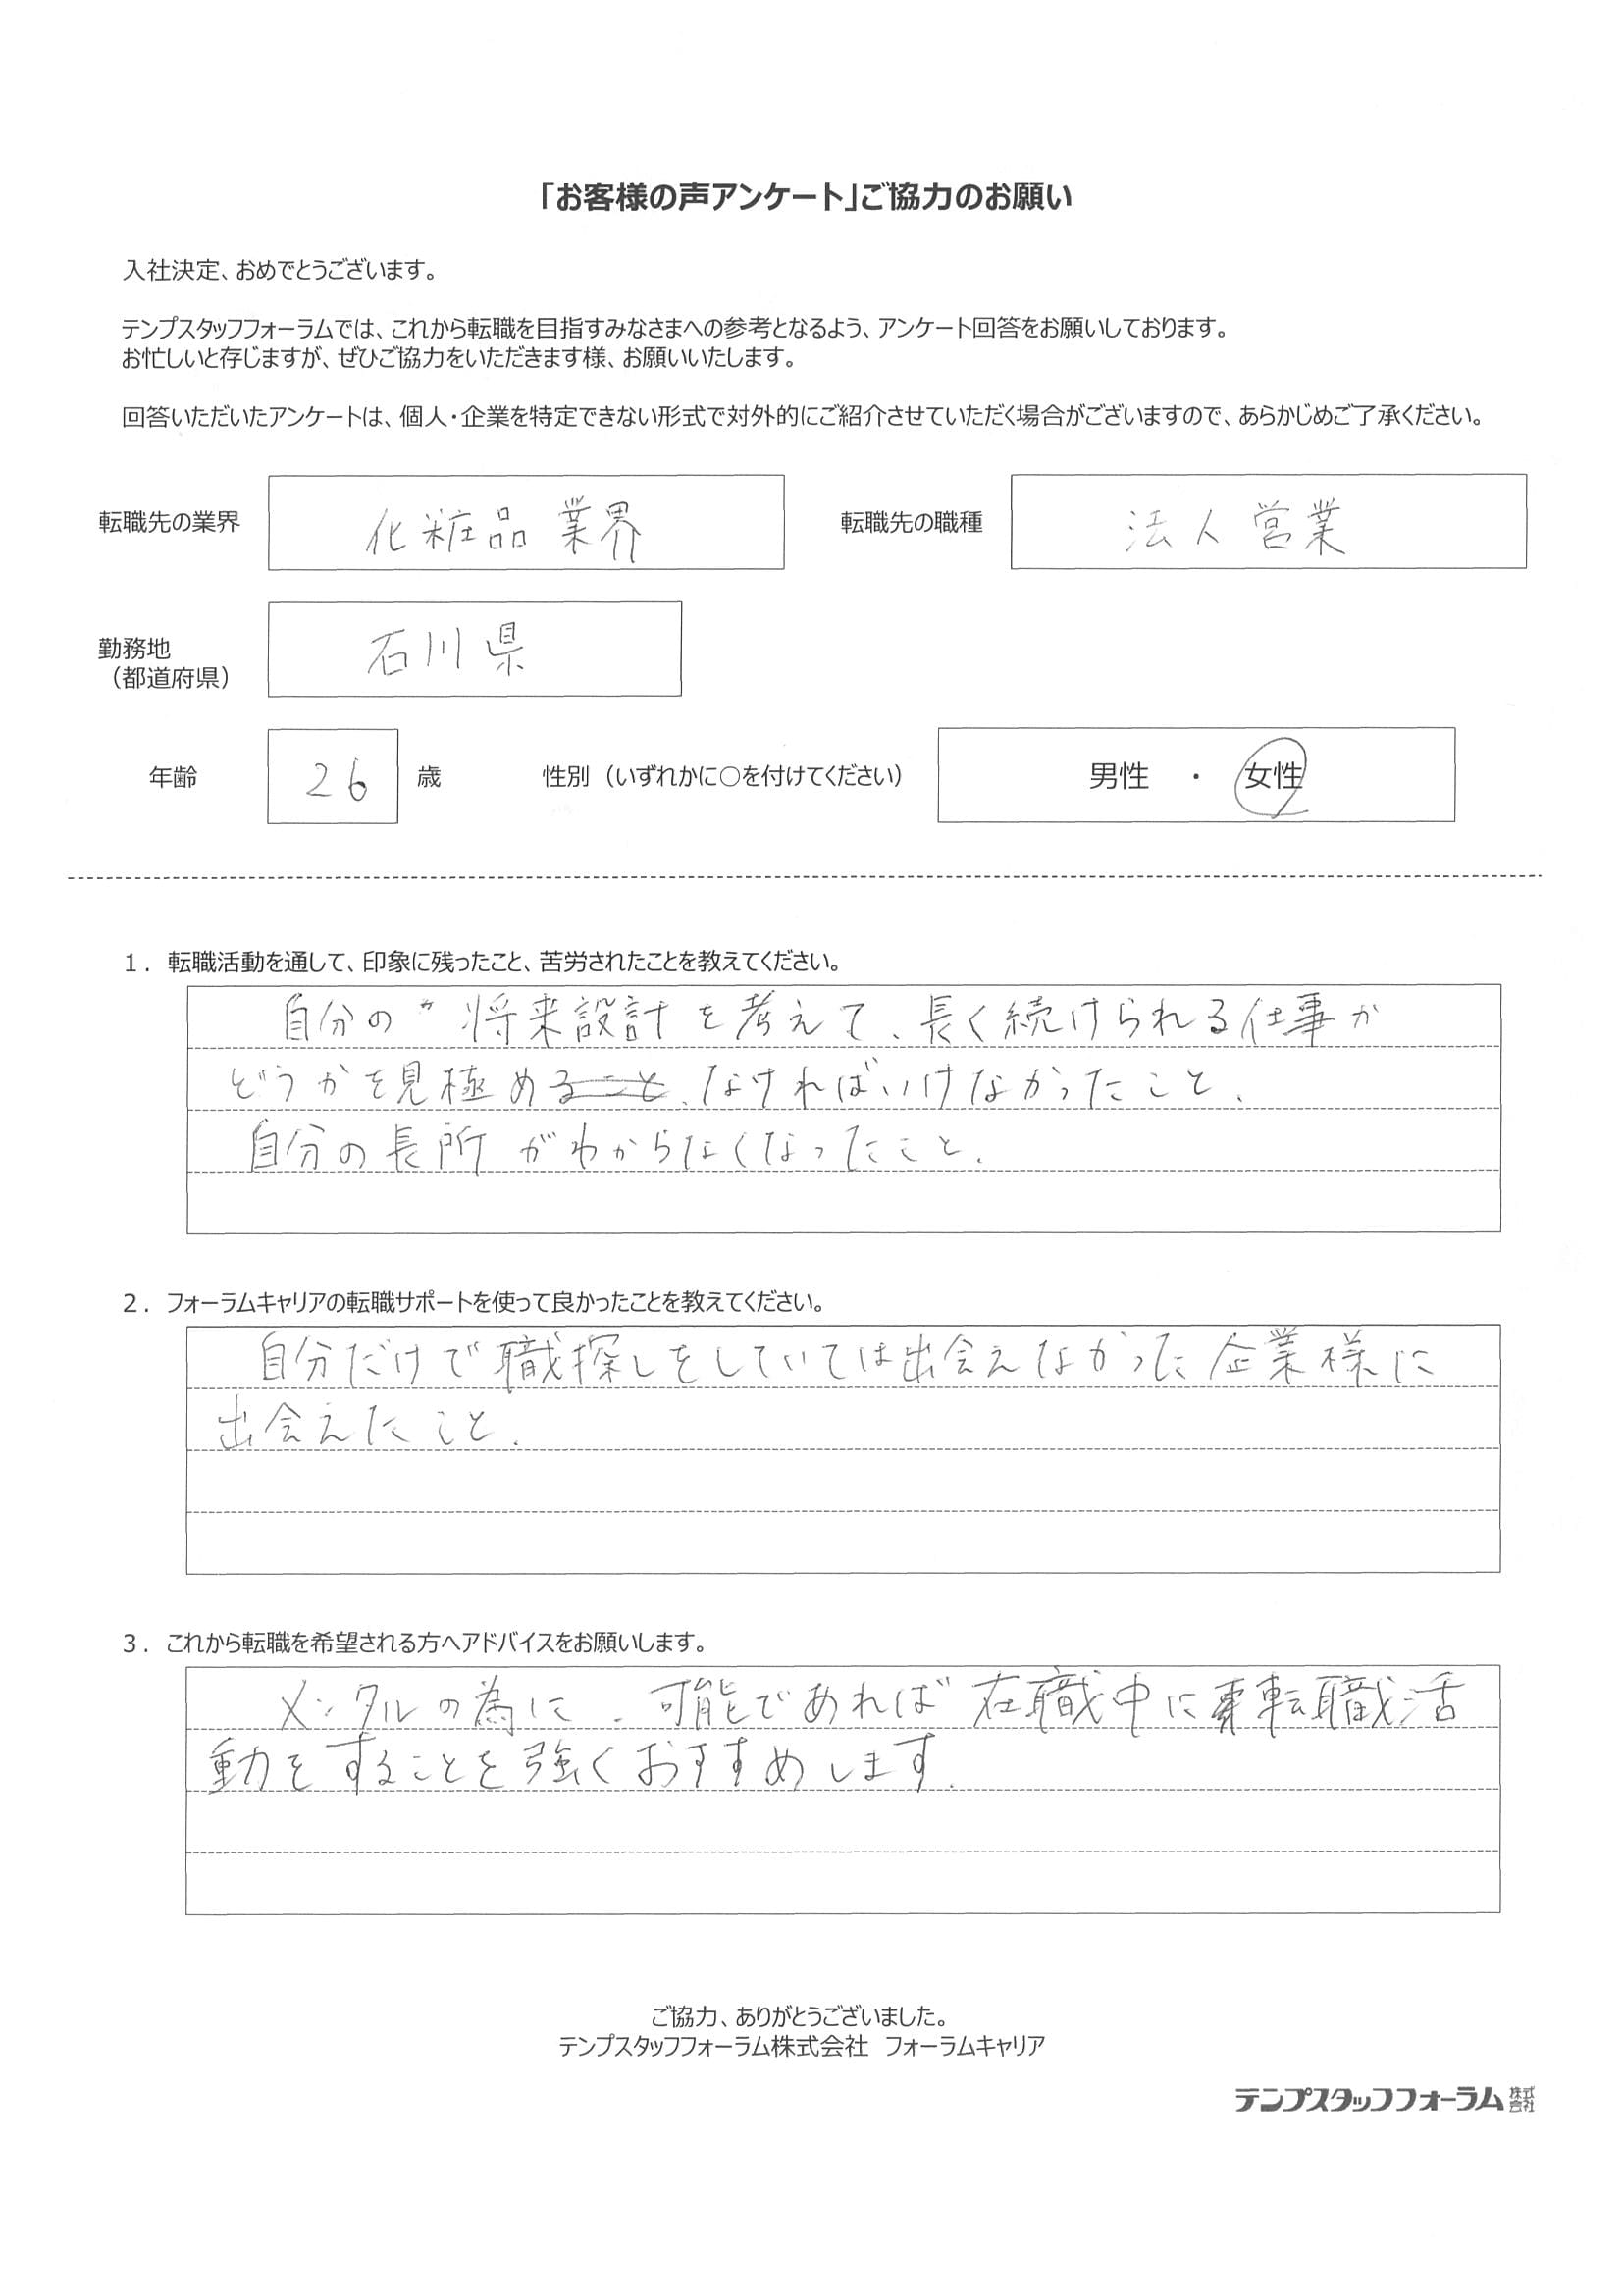 「お客様の声アンケート」ご協力のお願い
入社決定、おめでとうございます。
テンプスタッフフォーラムでは、これから転職を目指すみなさまへの参考となるよう、アンケート回答をお願いしております。
お忙しいと存じますが、ぜひご協力をいただきます様、お願いいたします。
回答いただいたアンケートは、個人・企業を特定できない形式で対外的にご紹介させていただく場合がございますので、あらかじめご了承ください。
転職先の業界 化粧品業界 転職先の職種 法人営業
勤務地 石川県
（都道府県）
年齢 26 歳 性別（いずれかに○を付けてください） 男性 ・ 女性
1．転職活動を通して、印象に残ったこと、苦労されたことを教えてください。
自分の将来設計を考えて、長く続けられる仕事か
どうかを見極めなければいけなかったこと、
自分の長所がわからなくなったこと。
2．フォーラムキャリアの転職サポートを使って良かったことを教えてください。
自分だけで職探しをしていては出会えなかった企業様に
出会えたこと。
3．これから転職を希望される方へアドバイスをお願いします。
メンタルの為に、可能であれば在職中に転職活
動をすることを強くおすすめします。
ご協力、ありがとうございました。
テンプスタッフフォーラム株式会社 フォーラムキャリア
テンプスタッフフォーラム株式会社